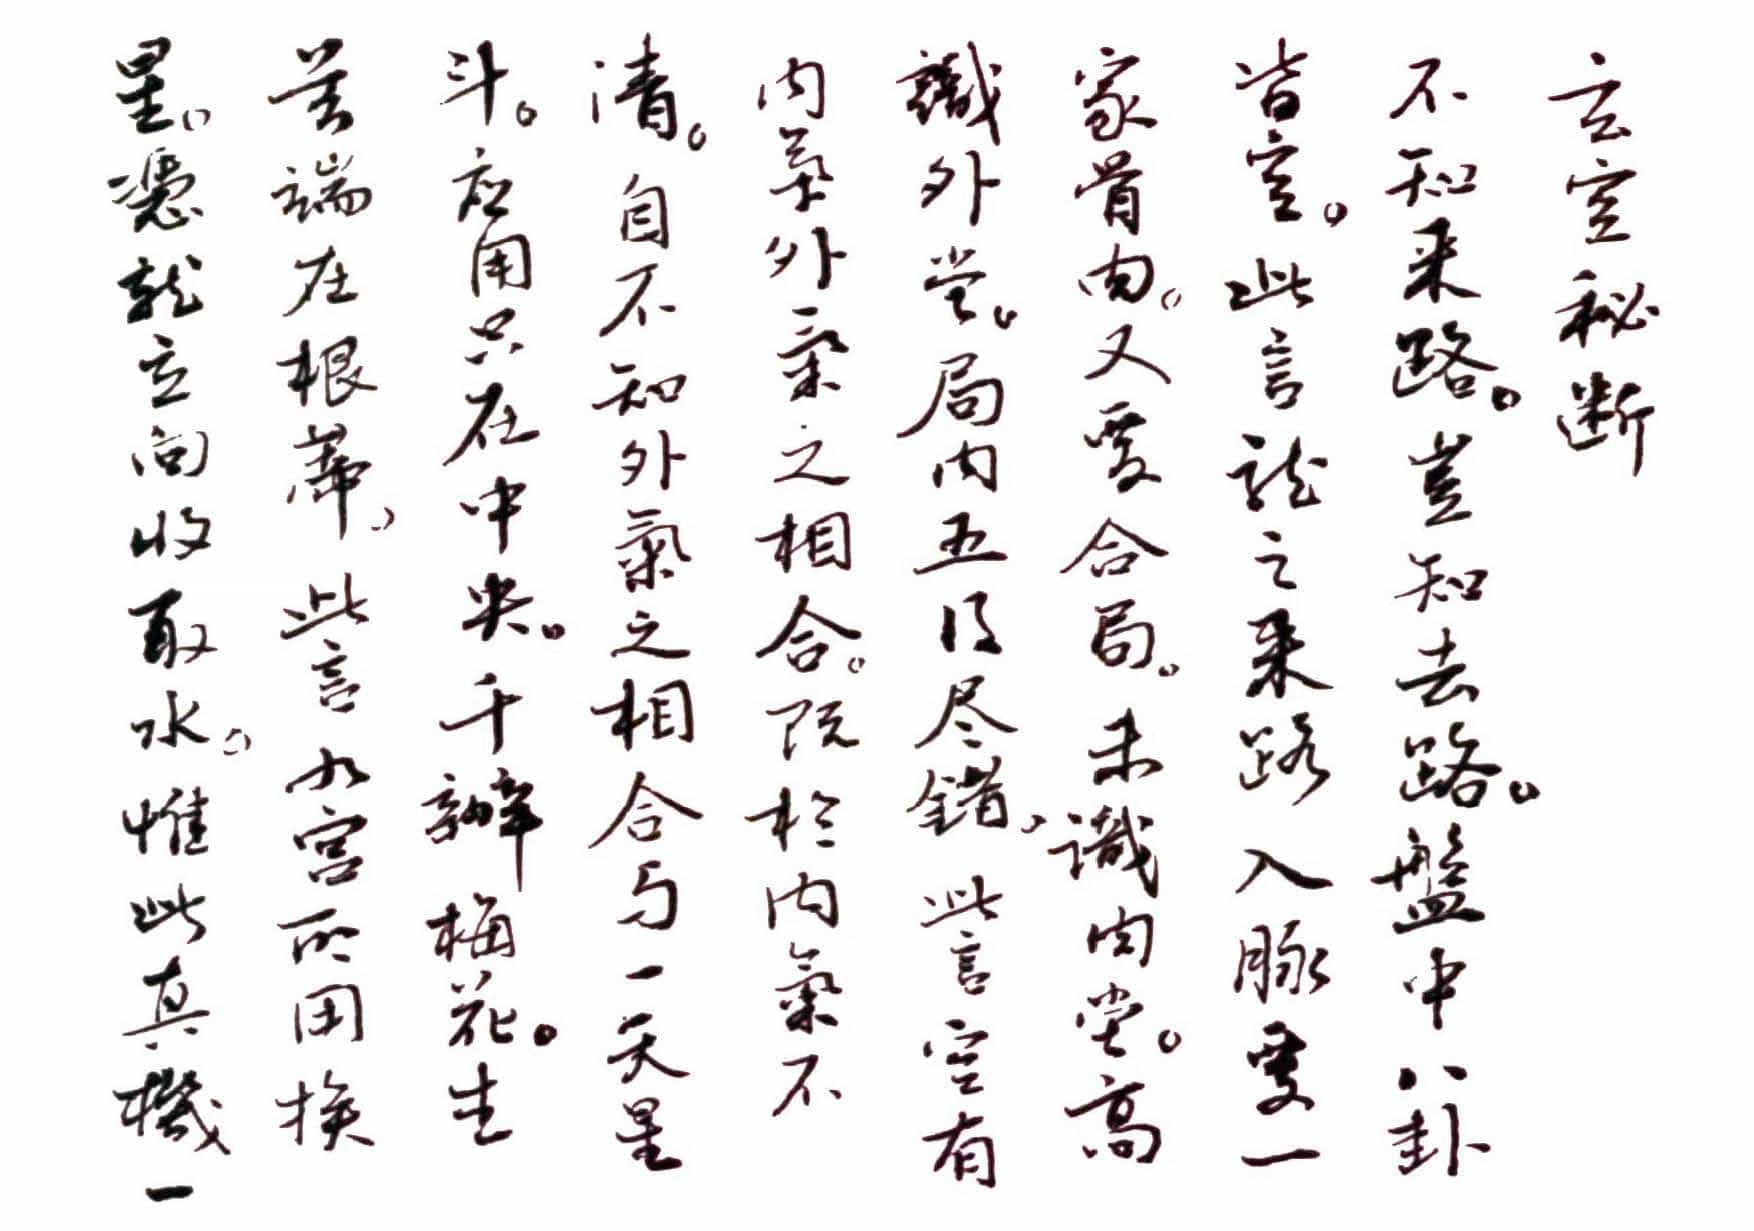 玄空秘断
不知来路。豈知去路。盤中八卦
皆空。此言龍之来路入脉要一
家骨肉。又要合局。未識内堂。焉
識外堂。局内五行尽錯，此言穴有
内氣外氣之相合。既於内氣不
清。自不知外氣之相合与一天星
斗。应用只在中央。千瓣梅花。生
苦端在根蒂，此言九宫所用挨
星。憑龍立向收取水。惟此真機一